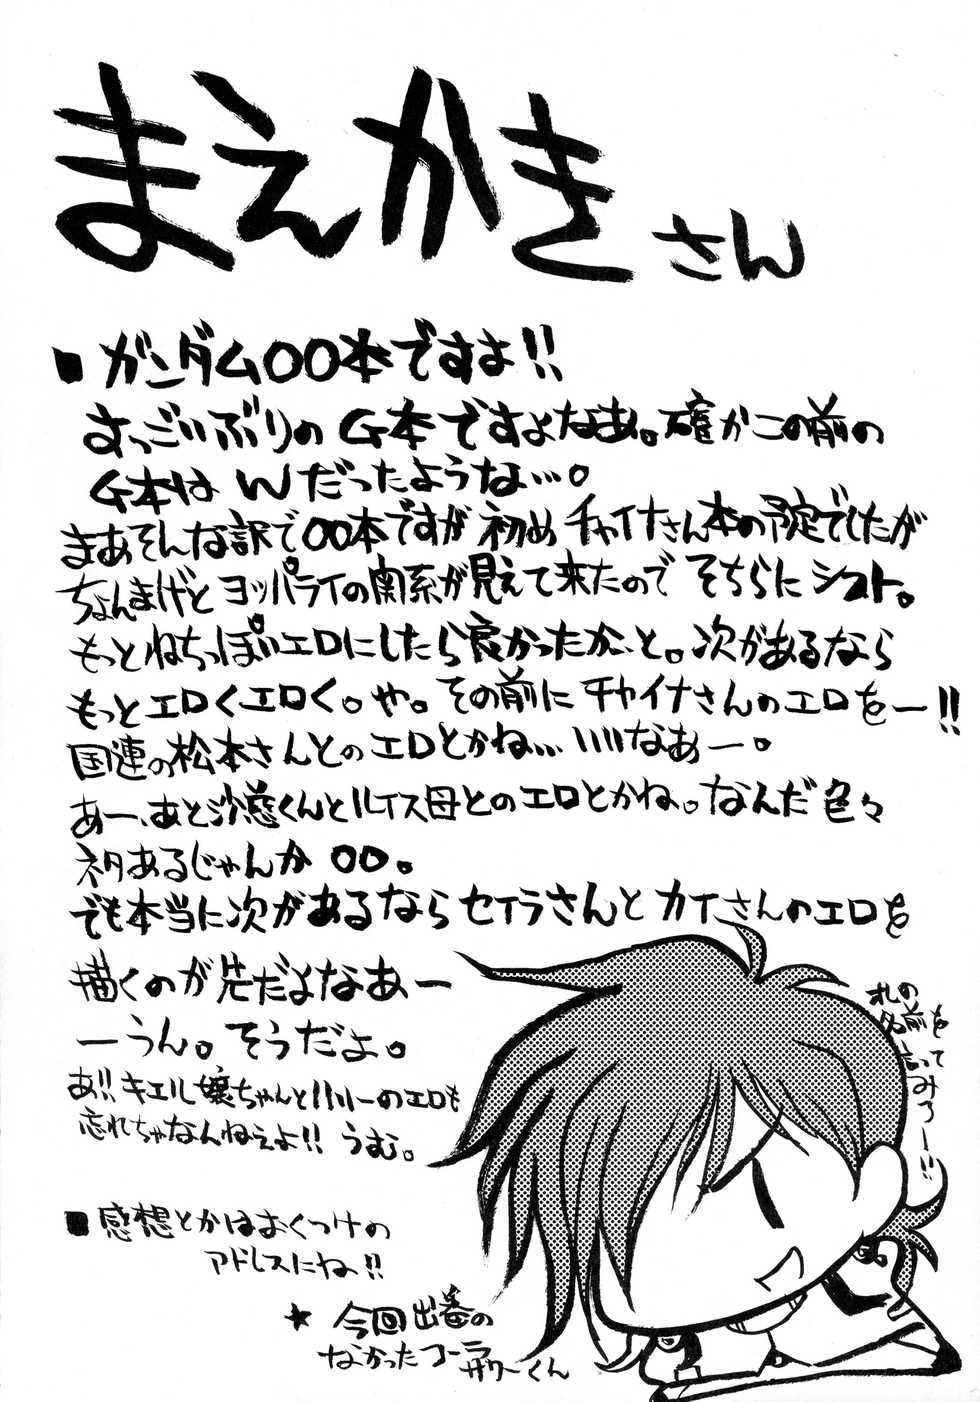 まえかきさん
■ ガンダム〇〇本ですよ!!
すっごいぶりのG本ですよなあ。確かこの前の
G本はWだったような…。
まあそんな訳で〇〇本ですが初めチャイナさん本の予定でしたが
ちょんまげとヨッパライの関系が見えて来たのでそちらにシフト。
もっとねちっぽいエロにしたら良かったか、と。次があるなら
もっとエロくエロく。や。その前にチャイナさんのエロをー!!
国連の松本さんとのエロとかね…いいなあー。
あー、あと沙慈くんとルイス母とのエロとかね。なんだ色々
ネタあるじゃんか〇〇。
でも本当に次があるならセイラさんとカイさんのエロを
描くのが先だよなあー
ーうん。そうだよ。
あ!!キエル嬢ちゃんとハリーのエロも
忘れちゃなんねぇよ!!うむ。
札の
名前を
言って
みろー!!
■ 感想とかはおくつけの
アドレスにね!!
★ 今回出番の
なかったコーラ
サワーくん